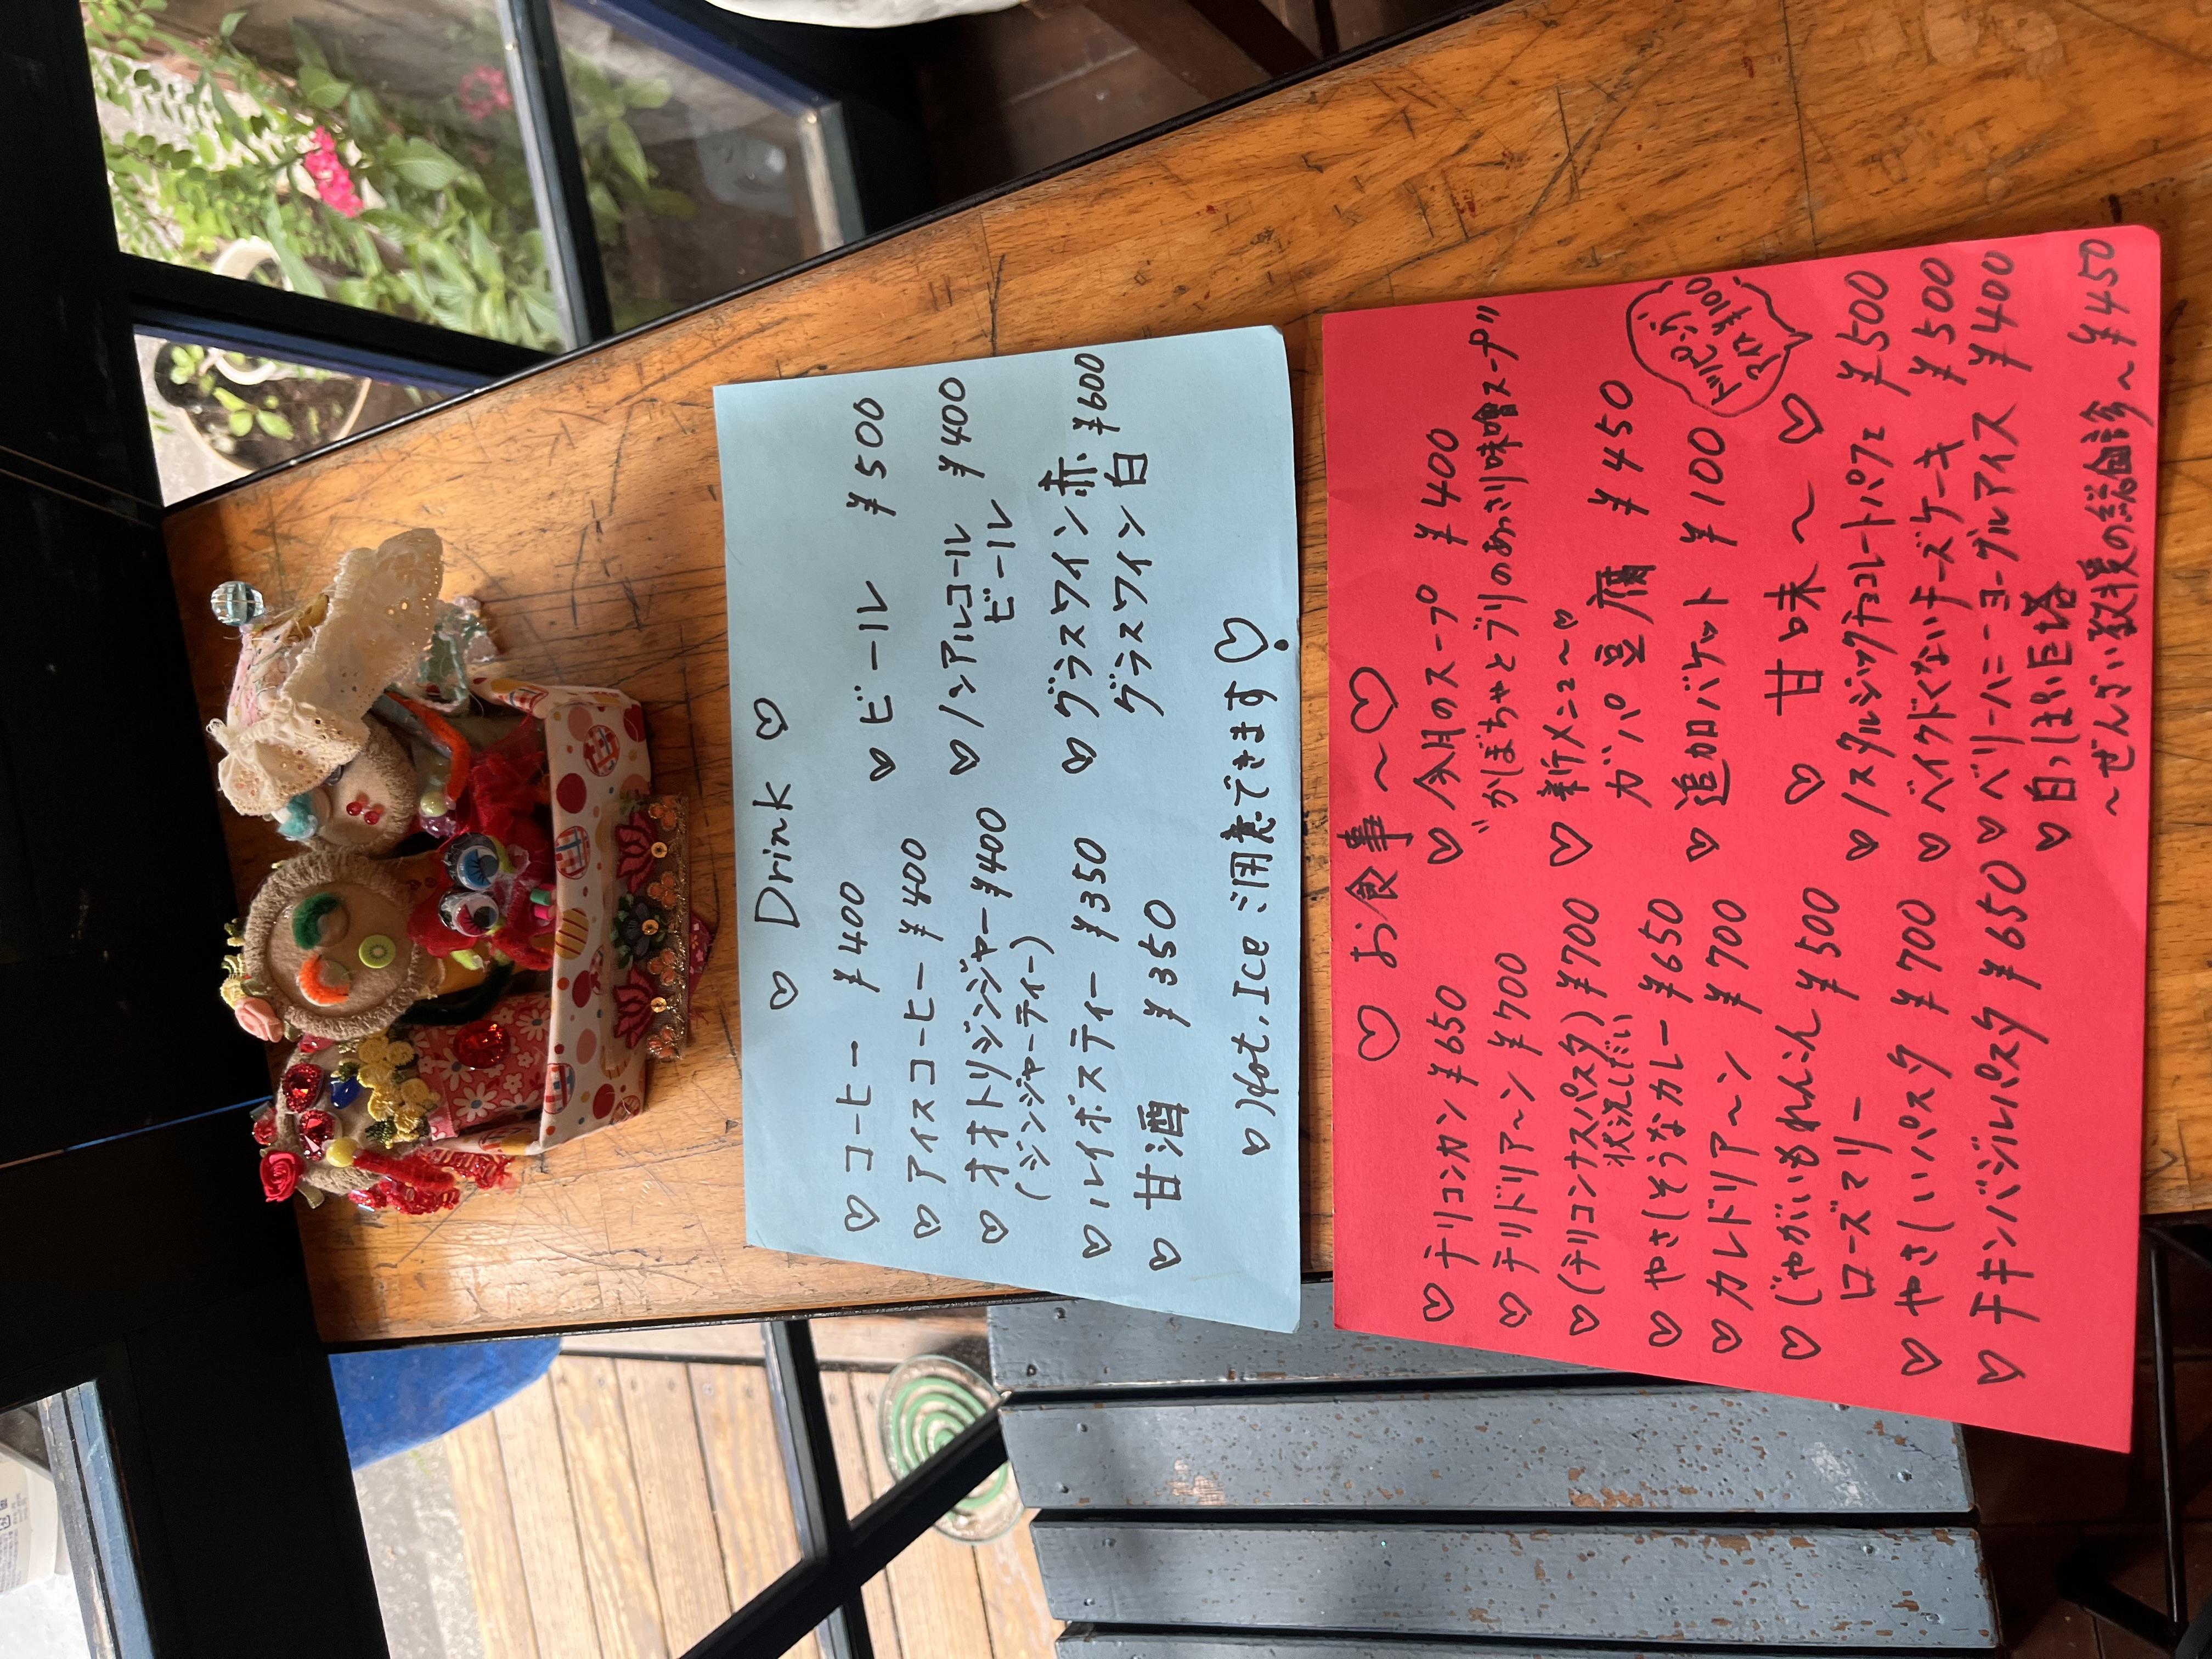 ♡ Drink ♡
♡ コーヒー ¥400
♡ アイスコーヒー ¥400
♡ オオトリジンジャー ¥400
(ジンジャーティー)
♡ ルイボスティー ¥350
♡ 甘酒 ¥350
♡ ビール ¥500
♡ ノンアルコール ¥400
ビール
♡ グラスワイン赤
グラスワイン白 ¥600
♡ Hot.Ice ご用意できます♡
♡ お食事〜♡
♡ チリコンカン ¥650
♡ チリドリア〜ン ¥700
♡ (チリコンナスパスタ) ¥700
状況しだい
♡ やさしそうなカレー ¥650
♡ カレドリア〜ン ¥700
♡ じゃがいもれんこん ¥500
ローズマリー
♡ やさしいパスタ ¥700
♡ チキンバジルパスタ ¥650
♡ 今月のスープ ¥400
"かぼちゃとブリのあっさり味噌スープ"
♡ 新メニュ〜"
ガパ豆腐 ¥450
♡ 追加バケット ¥100
♡ 甘味〜♡
トッピング
アイス ¥100
♡ ノスタルジックチョコレートパフェ ¥500
♡ ベイクドくないチーズケーキ ¥500
♡ ベリーハニーヨーグルアイス ¥400
♡ 白っぽい巨塔
〜ぜんざい教授の総回診〜 ¥450